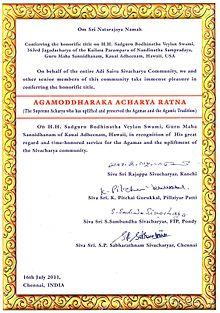 Om Sri Natarajaya Namah
Conferring the honorific title on H.H. Sadguru Bodhinatha Veylan Swami,
163rd Jagadacharya of the Kailasa Parampara of Nandinatha Sampradaya,
Guru Maha Sannidhanam, Kauai Aadheenam, Hawaii, USA
On behalf of the entire Adi Saiva Sivacharya Community, we and
other senior members of this community take immense pleasure in
conferring the honorific title,
AGAMODDHARAKA ACHARYA RATNA
(The Supreme Acharya who has uplifted and preserved the Agamas and the Agamic Tradition)
On H.H. Sadguru Bodhinatha Veylan Swami, Guru Maha
Sannidhanam of Kauai Adheenam, Hawaii, in recognition of His great
regard and time-honored service for the Agamas and the upliftment of
the Sivacharya community.
Siva Sri Rajappa Sivacharya, Kanchi
K. Pitchai
Siva Sri, K. Pitchai Gurukkal, Pillaiyar Patti
S. Sambanda Sivacharya
Siva Sri S.Sambandha Sivacharya, FIP, Pondy
Siva Sri. S.P. Sabharathnam Sivacharyar, Chennai
16th July 2011,
Chennai, INDIA